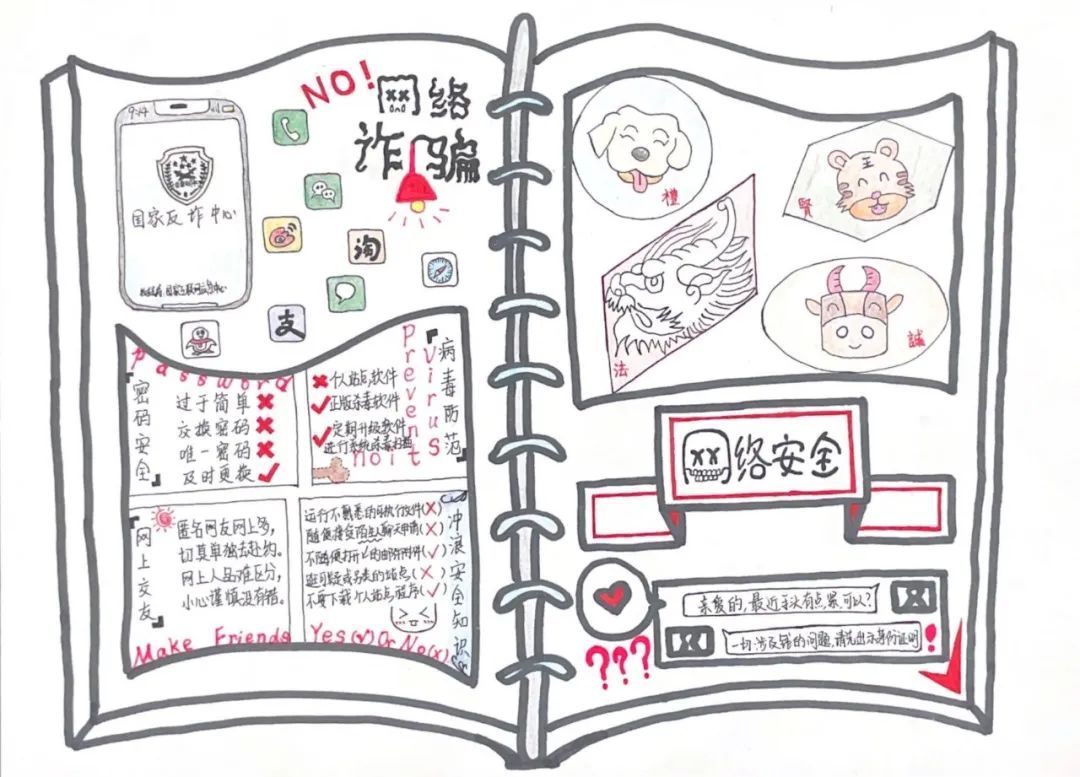 9:41
NO!
网络
诈骗
国家反诈中心
淘
支
Password
密码安全
过于简单 ✘
交换密码 ✘
唯一密码 ✘
及时更换 ✓
Prevent
Virus
noit
病毒防范
✘ 个人站点软件
✓ 正版杀毒软件
✓ 定期升级软件
进行系统杀毒扫描
网上交友
匿名网友网上多,
切莫单独去赴约。
网上人品难区分,
小心谨慎没有错。
Make Friends
冲浪安全知识
运行不熟悉的可执行文件(✗)
随便接受陌生人聊天申请(✗)
不随便打开
的邮件附件(✓)
逛可疑或另类的站点(✗)
不要下载个人站点程序(✓)
Yes(✓)Or No(✗)
禮
賢
王
法
誠
网络安全
亲爱的,最近手头有点累可以?
一切涉及钱的问题,请先出示身份证明
!
???